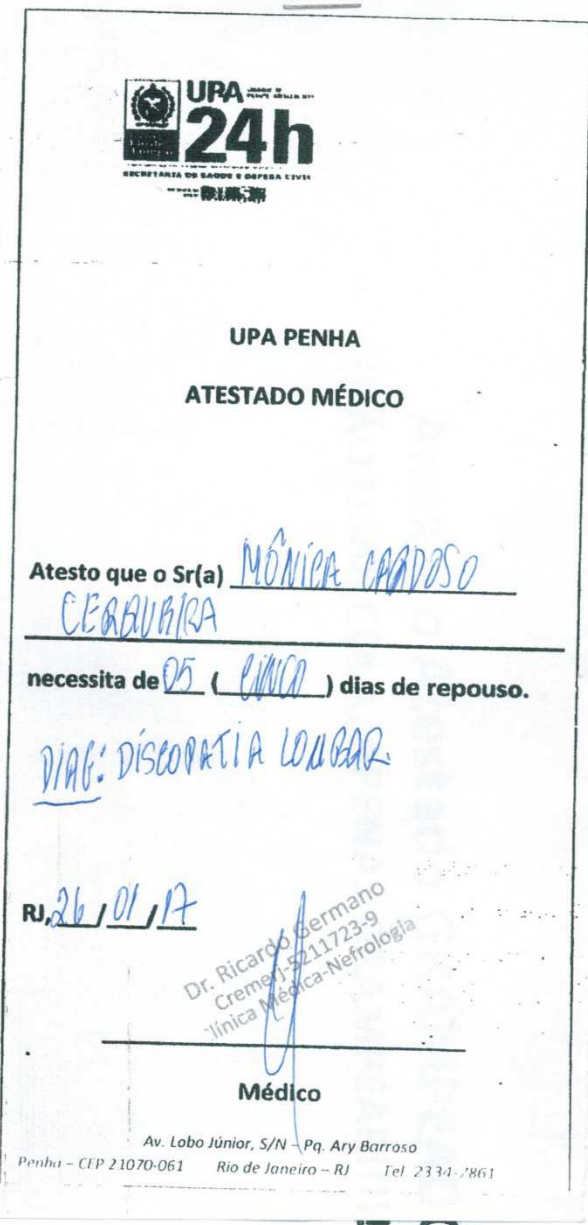 UPA
24h
SECRETARIA DE SAÚDE E DEFESA CIVIL
UPA PENHA
ATESTADO MÉDICO
Atesto que o Sr(a) MÔNICA CARDOSO
necessita de 05 ( CINCO ) dias de repouso.
DIAG: DISCOPATIA LOMBAR.
RJ, 26 / 01 / 17
Dr. Ricardo Germano
Cremerj-5211723-9
línica Médica-Nefrologia
Médico
Av. Lobo Júnior, S/N – Pq. Ary Barroso
Penha – CEP 21070-061 Rio de Janeiro – RJ Tel. 2334-7861